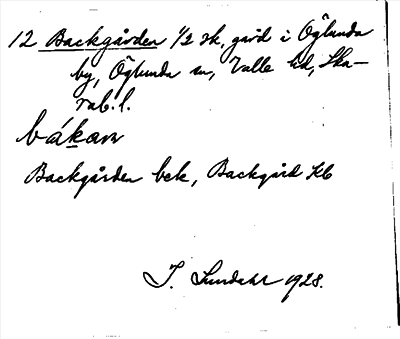 12 Backgården 1/2 sk, gård i Öglunda
by, Öglunda sn, Valle hd, Ska-
rab. l.
bákaɴ
Backgården bek, Backgård Kb
I. Lundahl 1928.